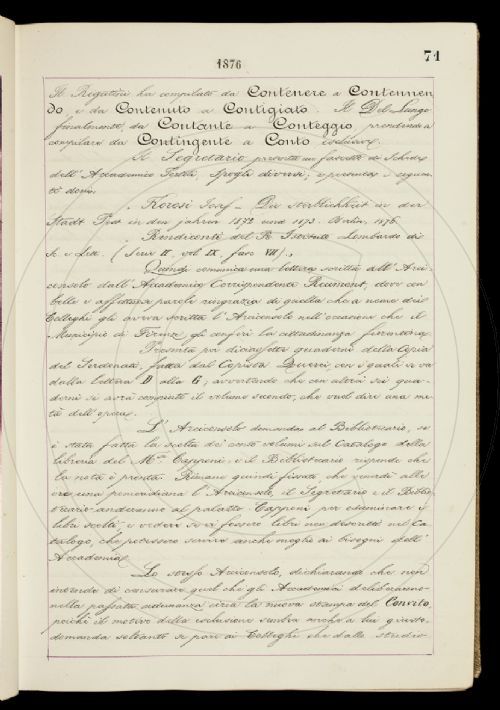 1876
71
Il Rigutini ha compilato da Contenere a Contennen
do e da Contenuto a Contigiato. Il Del Lungo
finalmente da Contante a Conteggio, prendendo a
compilare da Contingente a Conto esclusive.
Il Segretario presenta un fascetto di Schede
dell'Accademico Spogli diversi; e presenta i seguen
ti doni:
Korosi Josef - Die Sterblichkeit in der
Stadt Pest in den jahren 1872 und 1873. Berlin, 1876.
Rendiconti del R. Istituto Lombardo di
S. e Lett. (Serie II, vol. IX, fasc. VII).
Quindi comunica una lettera scritta all'Arci
consolo dall'Accademico Corrispondente Reumont, dove con
belle e affettuose parole ringrazia di quella che a nome dei
Colleghi gli aveva scritta l'Arciconsolo nell'occasione che il
Municipio di Firenze gli conferì la cittadinanza fiorentina.
Presenta poi diciassette quaderni della Copia
del Serdonati, fatta dal Copista Querci, con i quali si va
dalla lettera D alla G; avvertendo che con altri sei qua-
derni si avrà compiuto il volume secondo, che vuol dire una me
tà dell'opera.
L'Arciconsolo domanda al Bibliotecario, se
è stata fatta la scelta dei cento volumi sul Catalogo della
libreria del M.se Capponi: e il Bibliotecario risponde che
la nota è pronta. Rimane quindi fissato che venerdì alle
ore una pomeridiana l'Arciconsolo, il Segretario e il Biblio
tecario anderanno al palazzo Capponi per esaminare i
libri scelti e vedere se vi fossero libri non descritti nel Ca
talogo, che potessero servire anche meglio ai bisogni dell'
Accademia.
Lo stesso Arciconsolo, dichiarando che non
intende di censurare quel che gli Accademici deliberarono
nella passata adunanza circa la nuova stampa del Convito,
poiché il motivo della esclusione sembra anche a lui giusto,
domanda soltanto se pare ai Colleghi che dallo studio